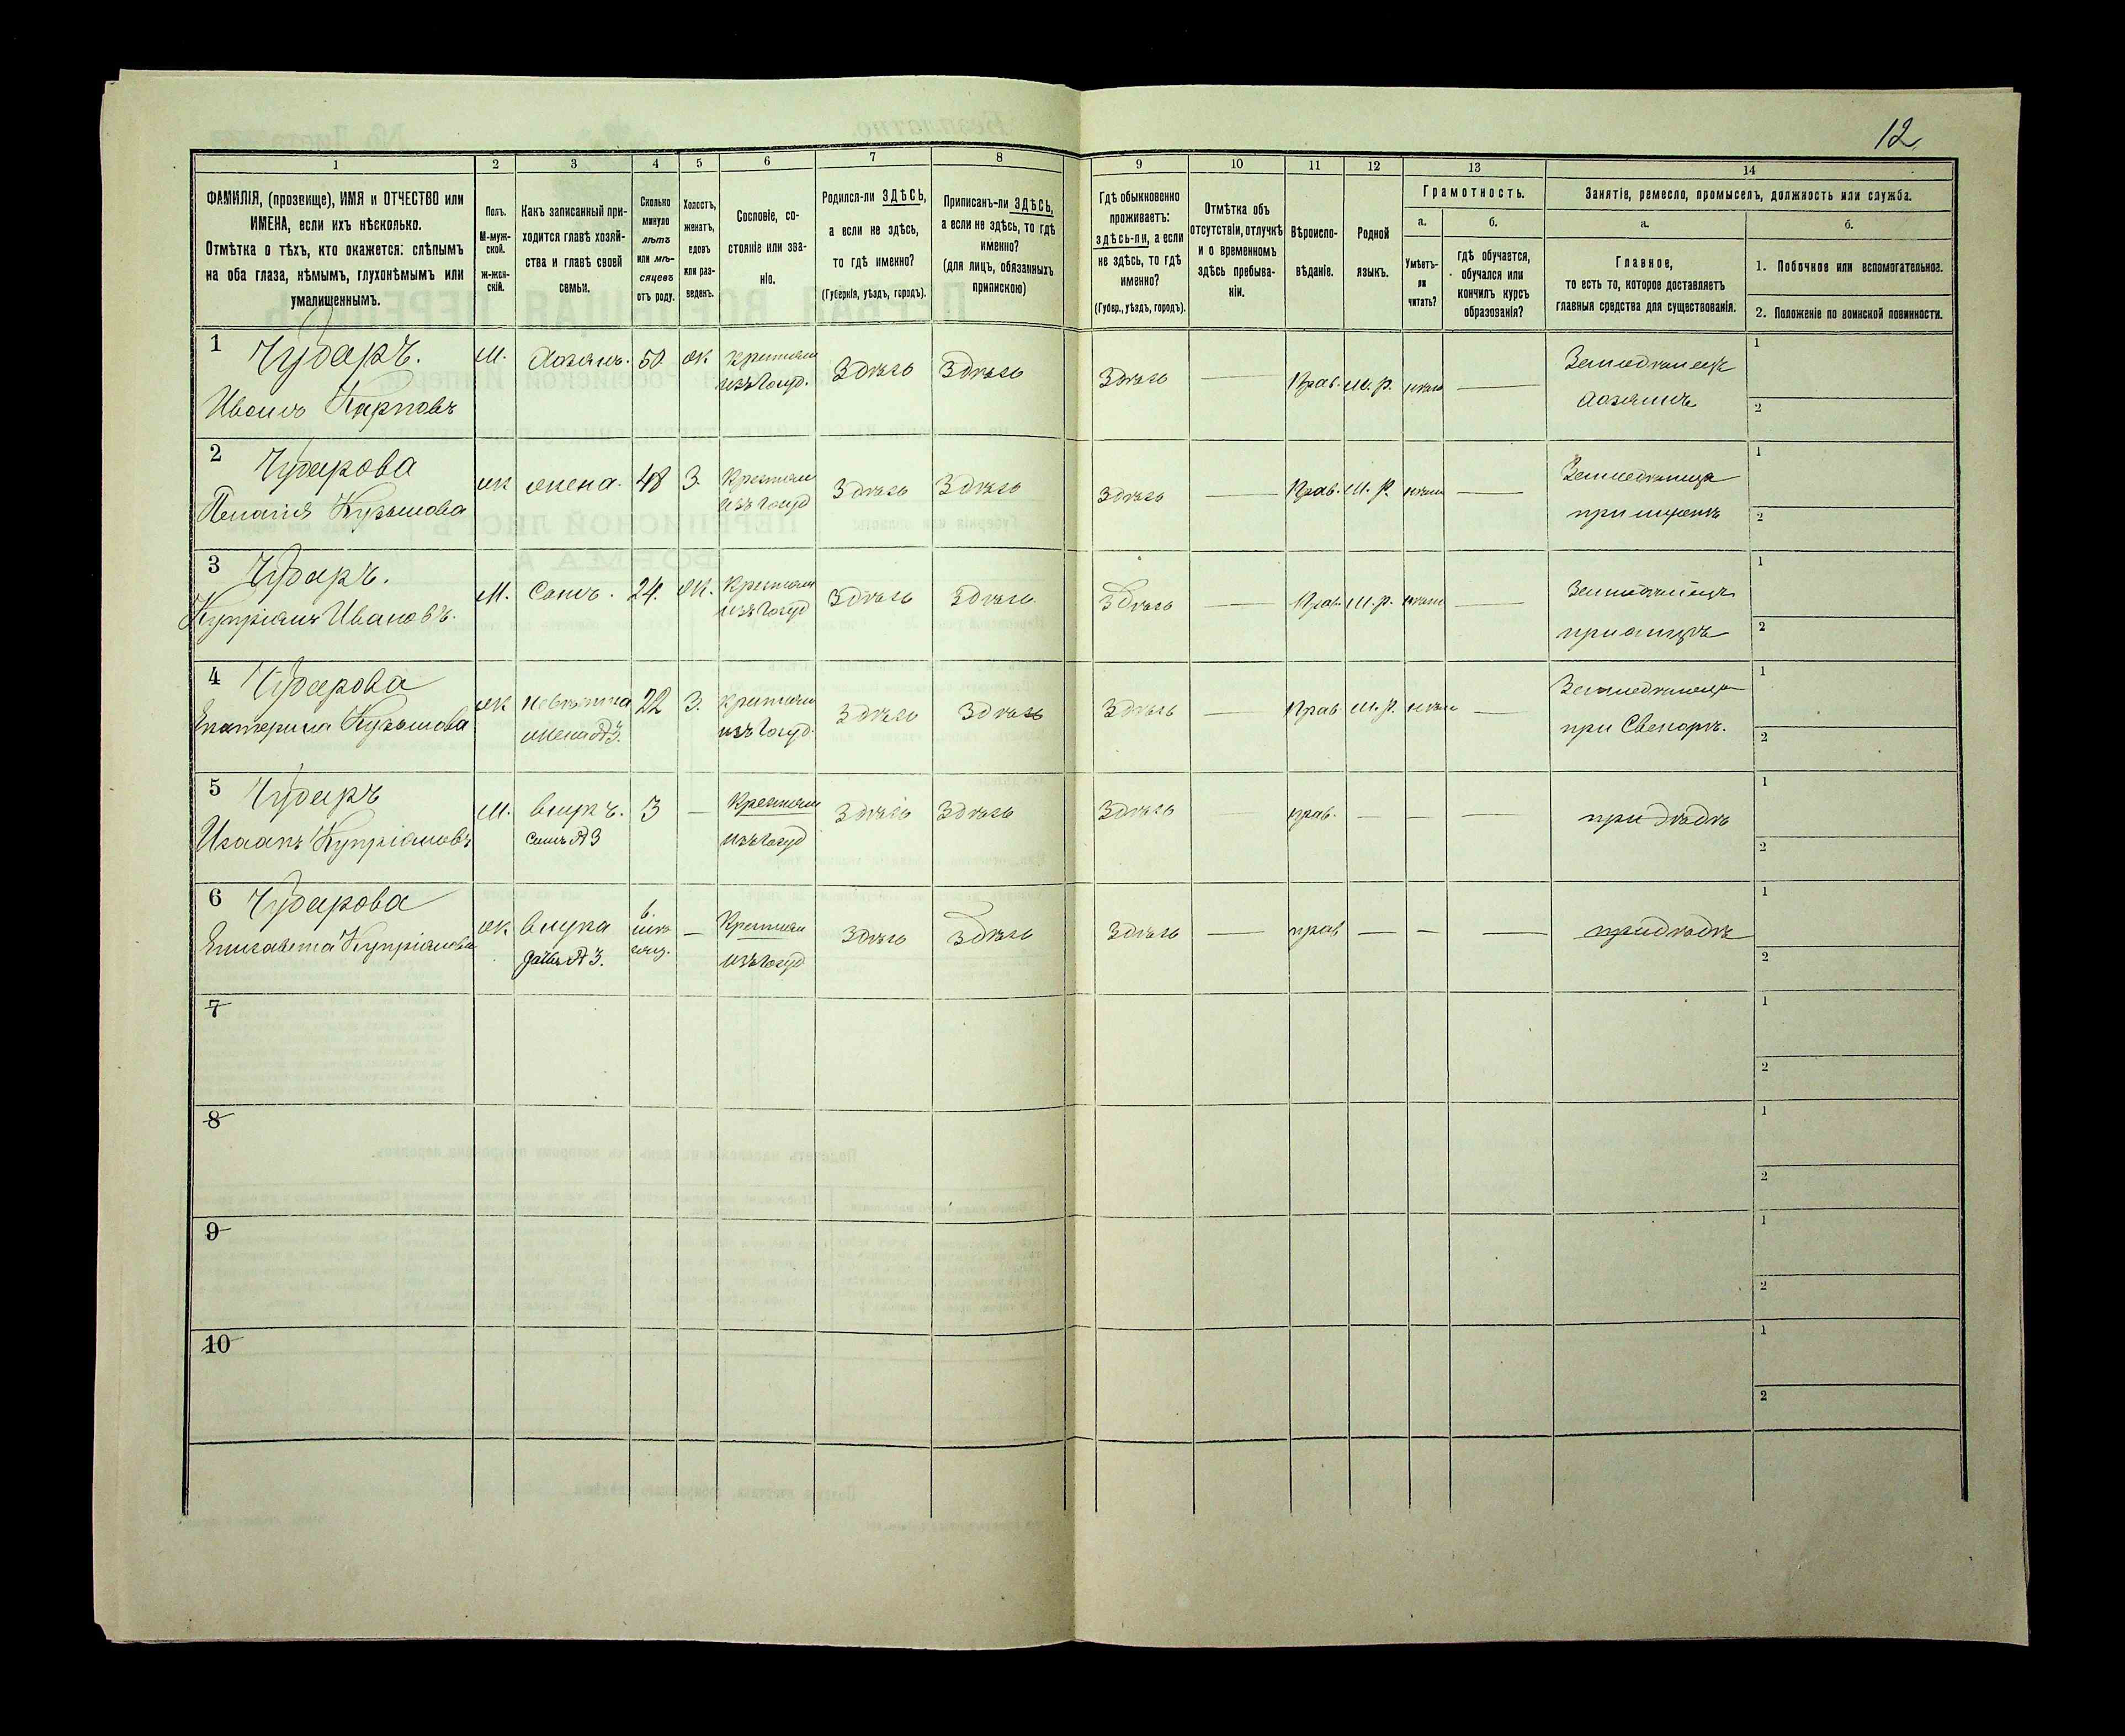 12
1 2 3 4 5 6 7 8 9 10 11 12 13 14
ФАМИЛІЯ, (прозвище), ИМЯ и ОТЧЕСТВО или
ИМЕНА, если ихъ нѣсколько.
Отмѣтка о тѣхъ, кто окажется: слѣпымъ
на оба глаза, нѣмымъ, глухонѣмымъ или
умалишеннымъ.
Полъ.
М-муж-
ской.
ж-жен-
скій.
Какъ записанный при-
ходится главѣ хозяй-
ства и главѣ своей
семьи.
Сколько
минуло
лѣтъ
или мѣ-
сяцевъ
отъ роду.
Холостъ,
женатъ,
вдовъ
или раз-
веденъ.
Сословіе, со-
стояніе или зва-
ніе.
Родился-ли ЗДѢСЬ,
а если не здѣсь,
то гдѣ именно?
(Губернія, уѣздъ, городъ).
Приписанъ-ли ЗДѢСЬ,
а если не здѣсь, то гдѣ
именно?
(для лицъ, обязанныхъ
припискою)
Гдѣ обыкновенно
проживаетъ:
здѣсь-ли, а если
не здѣсь, то гдѣ
именно?
(Губер., уѣздъ, городъ).
Отмѣтка объ
отсутствіи, отлучкѣ
и о временномъ
здѣсь пребыва-
ніи.
Вѣроиспо-
вѣданіе.
Родной
языкъ.
Грамотность.
а.
Умѣетъ-
ли
читать?
б.
гдѣ обучается,
обучался или
кончилъ курсъ
образованія?
Занятіе, ремесло, промыселъ, должность или служба.
а.
Главное,
то есть то, которое доставляетъ
главныя средства для существованія.
б.
1. Побочное или вспомогательное.
2. Положеніе по воинской повинности.
1 Чударъ. м. хозяинъ. 50 ж. крестьян Здѣсь Здѣсь Здѣсь Прав. м. р. Земледѣлецъ 1
Иванъ Карповъ изъ госуд. хозяинъ 2
2 Чударова ж жена. 48 З. Крестьян Здѣсь Здѣсь Здѣсь Прав. м. р. 1
Пелагія Кузьмова изъ госуд при мужѣ 2
3 Чударъ. М. Сынъ. 24. ж. Крестьян Здѣсь Здѣсь Здѣсь Прав. м. р. 1
Купріянъ Ивановъ. изъ госуд при отцѣ 2
4 Чударова ж невѣстка 22 З. крестьян Здѣсь Здѣсь Здѣсь Прав м. р. 1
Екатерина Кузьмова жена № 3. изъ госуд. при Свекорѣ. 2
5 Чударъ М. внукъ. 3 — Крестьян Здѣсь Здѣсь Здѣсь прав. — — — при дѣдѣ 1
Исаакъ Купріяновъ сынъ № 3 изъ госуд 2
6 Чударова ж внука 6. — Крестьян Здѣсь Здѣсь Здѣсь — прав — — — при дѣдѣ 1
Елизавета Купріянова дочь № 3. изъ госуд 2
7 1
2
8 1
2
9 1
2
10 1
2